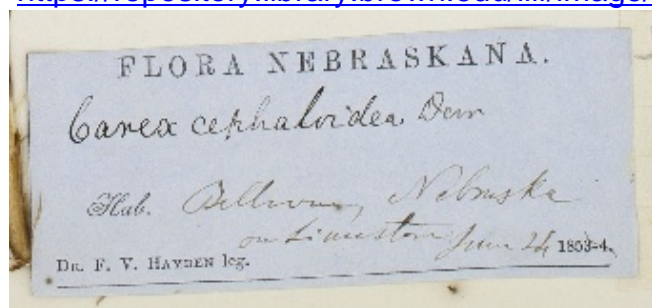 FLORA NEBRASKANA.
Carex cephaloidea Dew
Hab. Bellevue, Nebraska
on Limestone June 24, 1853-4.
Dr. F. V. HAYDEN leg.